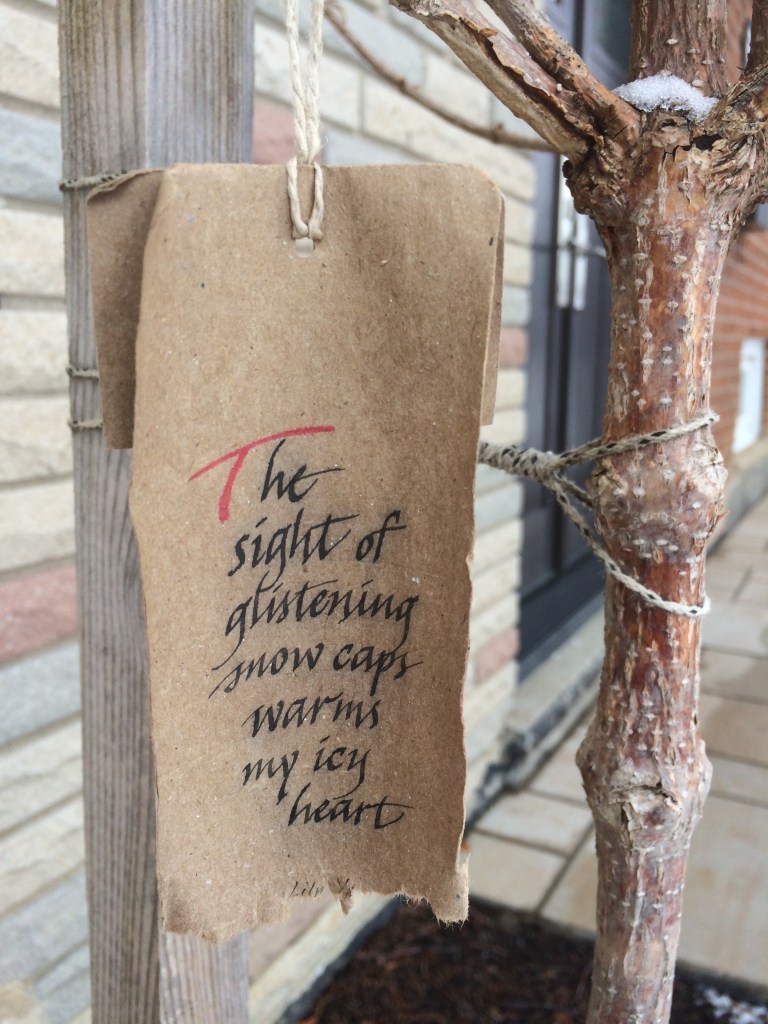 The
sight of
glistening
snow caps
warms
my icy
heart